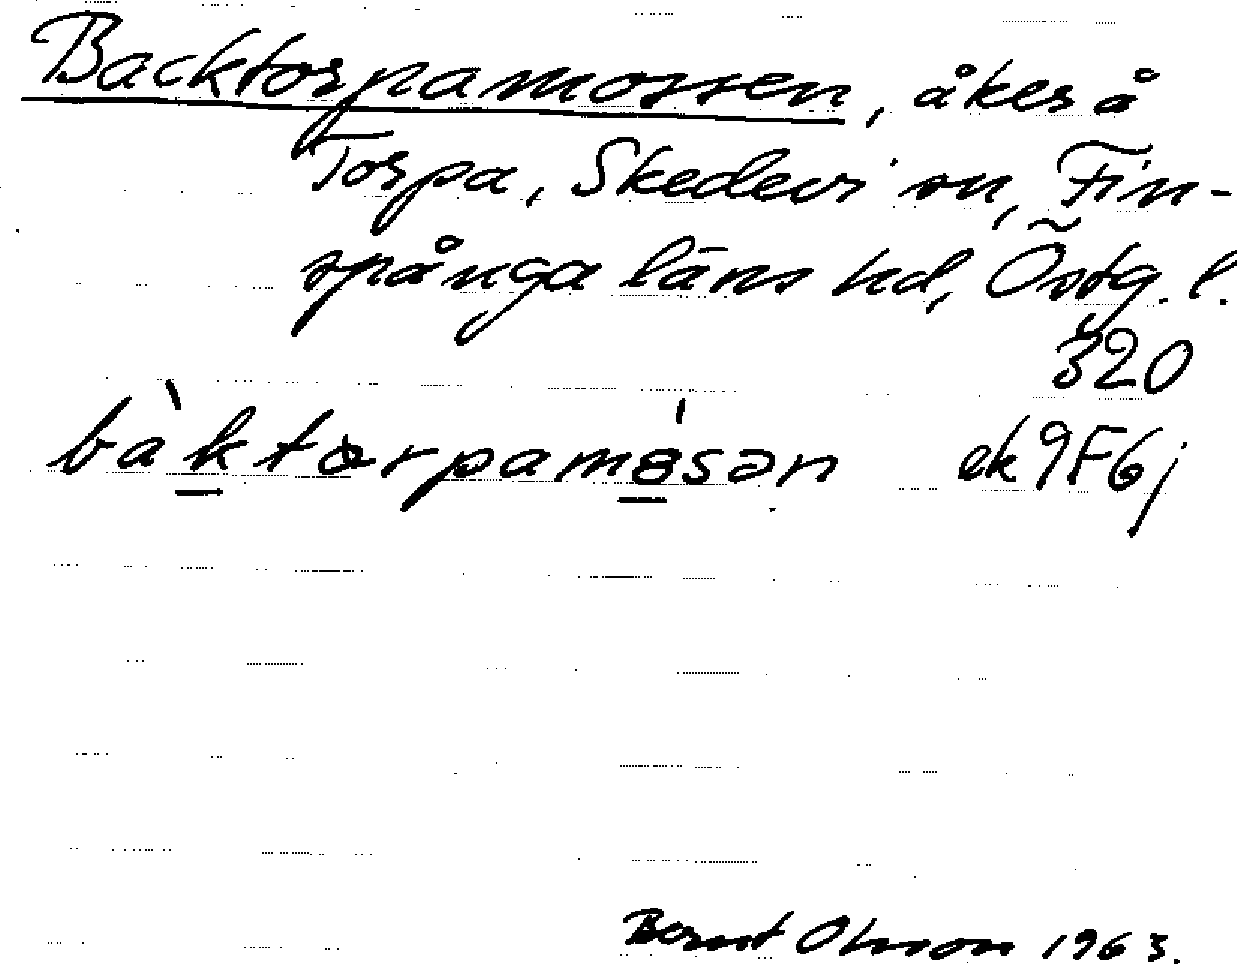 Backtorpamossen, åker å
Torpa, Skedevi sn, Fin-
spånga läns hd, Östg. l.
320
bàktorpamósən ek 9F6j
Bernt Olsson 1963.